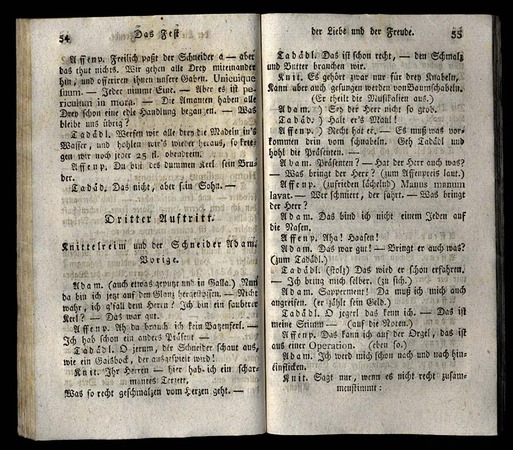 54 Das Fest
Affenp. Freilich paßt der Schneider a — aber
das thut nichts. Wir gehen alle Drey miteinander
hin, und offeriren ihnen unsere Gaben. Unicuique
suum. — Jeder nimmt Eine. — Aber es ist pe-
riculum in mora. — Die Amanten haben alle
Drey schon eine edle Handlung begangen. — Was
bleibt uns übrig?
Tadädl. Werfen wir alle drey die Madeln in's
Wasser, und hohlen wir's wieder heraus, so krie-
gen wir noch jeder 25 fl. obendrein.
Affenp. Du bist des dummen Kerl sein Bru-
der.
Tadäd. Das nicht, aber sein Sohn. —
Dritter Auftritt.
Knittelreim und der Schneider Adam.
Vorige.
Adam. (auch etwas geputzt und in Galla.) Nun
da bin ich jezt auf den Glanz hergeschossen. — Nicht
wahr, ich g'fall dem Herrn? Ich bin ein sauberer
Kerl? — Das war gut.
Affenp. Ah da brauch ich kein Batzenferl. —
Ich hab schon ein anders Präsent —
Tadädl. O jerum, der Schneider schaut aus,
wie ein Gaisbock, der ausgspielt wird!
Knit. Ihr Herren — hier hab ich ein schar-
mantes Terzett,
Was so recht geschmalzen vom Herzen geht. —
der Liebe und der Freude. 55
Tadädl. Das ist schon recht, — den Schmalz
und Butter brauchen wir.
Knit. Es gehört zwar nur für drey Knabeln,
Kann aber auch gesungen werden von Baumschabeln.
(Er theilt die Musikalien aus.)
Adam.) Sey der Herr nicht so grob.
Tadäd.) Halt er's Maul!
Affenp.) Recht hat er. — Es muß was vor-
kommen drin vom schnabeln. Geh Tadädl und
hohl die Präsenten. —
Adam. Präsenten? — Hat der Herr auch was?
— Was bringt der Herr? (zum Affenpreis laut.)
Affenp. (zufrieden lächelnd) Manus manum
lavat. — Wer schmiert, der fährt. — Was bringt
der Herr?
Adam. Das bind ich nicht einem Jeden auf
die Nasen.
Affenp. Aha! Haasen!
Adam. Das war gut! — Bringt er auch was?
(zum Tadädl.)
Tadädl. (stolz) Das wird er schon erfahren.
— Ich bring mich selber. (zu sich.)
Adam. Sapperment! Da muß ich mich auch
angreifen. (er zählt sein Geld.)
Tadädl. O jegerl das kenn ich. — Das ist
meine Stimm — (auf die Noten.)
Affenp. Das kann ich auf der Orgel, das ist
aus einer Operation. (eben so.)
Adam. Ich werd mich schon nach und nach hin-
einflicken.
Knit. Sagt nur, wenn es nicht recht zusam-
menstimmt: